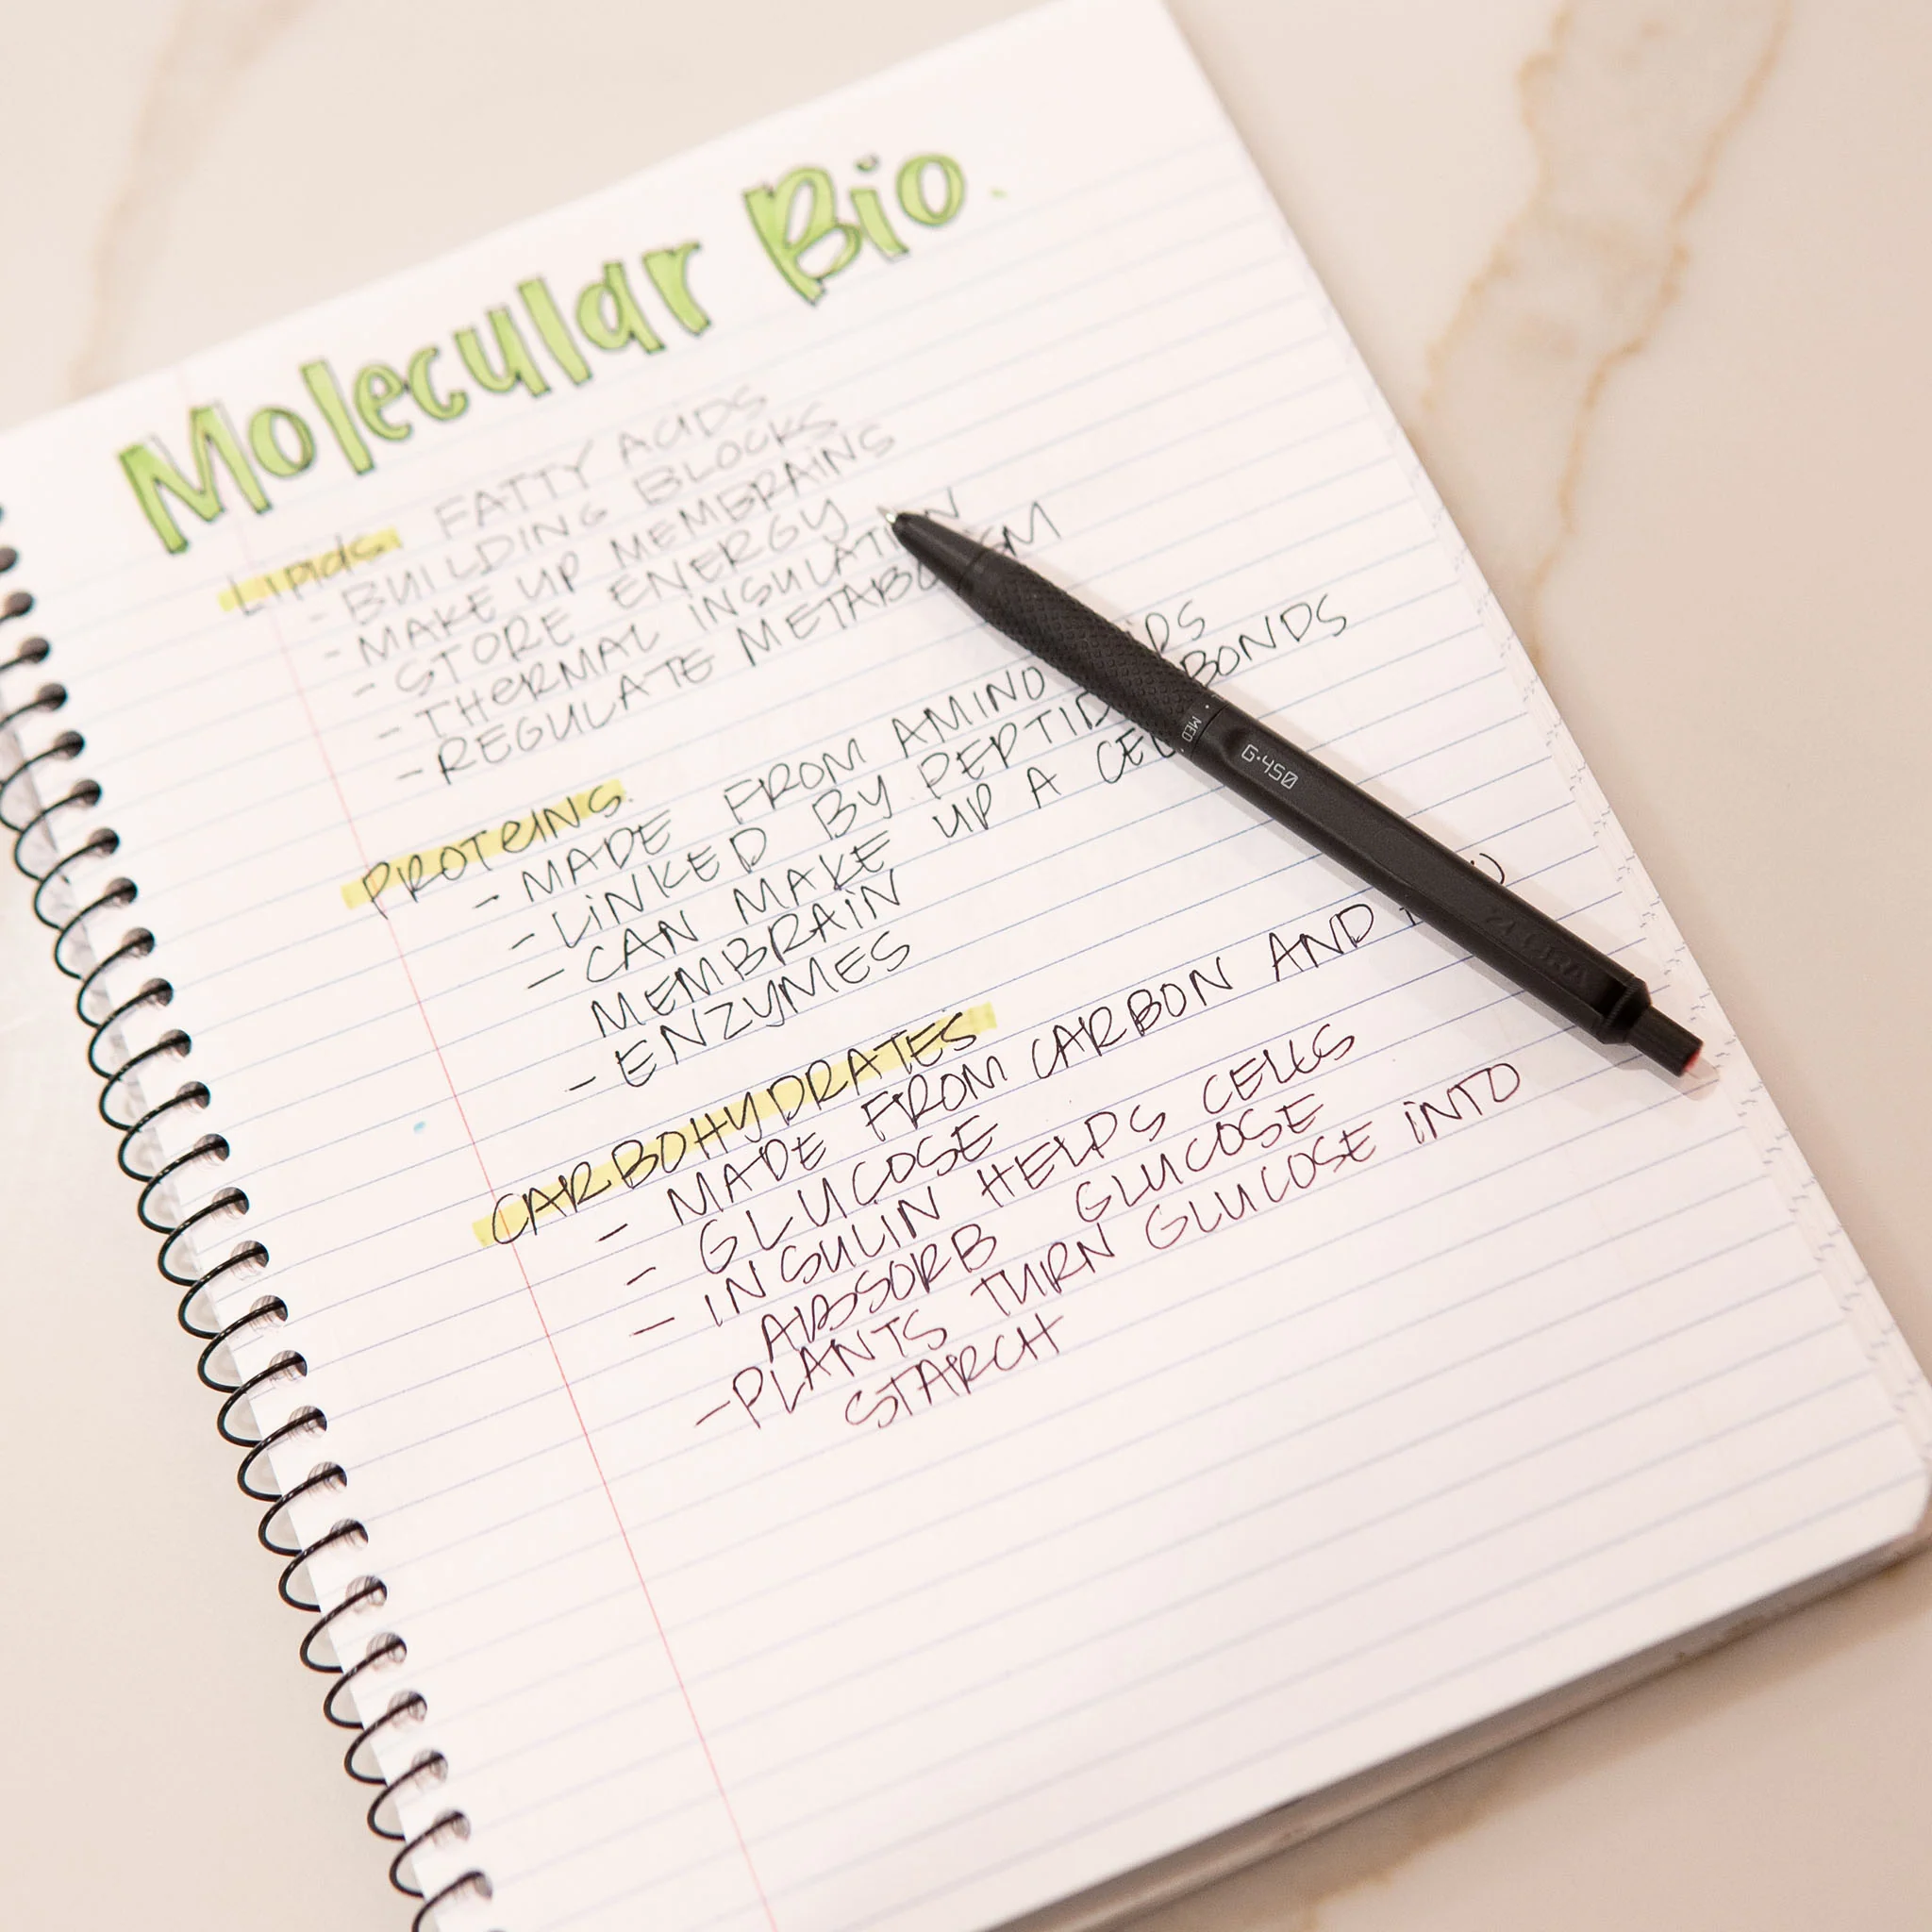 Molecular Bio.
Lipids: FATTY ACIDS
- BUILDING BLOCKS
- MAKE UP MEMBRAINS
- STORE ENERGY
- THERMAL INSULATION
- REGULATE METABOLISM
PROTEINS.
- MADE FROM AMINO
- LINKED BY PEPTIDE BONDS
- CAN MAKE UP A CELL
MEMBRAIN
- ENZYMES
CARBOHYDRATES
- MADE FROM CARBON AND
- GLUCOSE
- INSULIN HELPS CELLS
ABSORB GLUCOSE
- PLANTS TURN GLUCOSE INTO
STARCH
MED
G-450